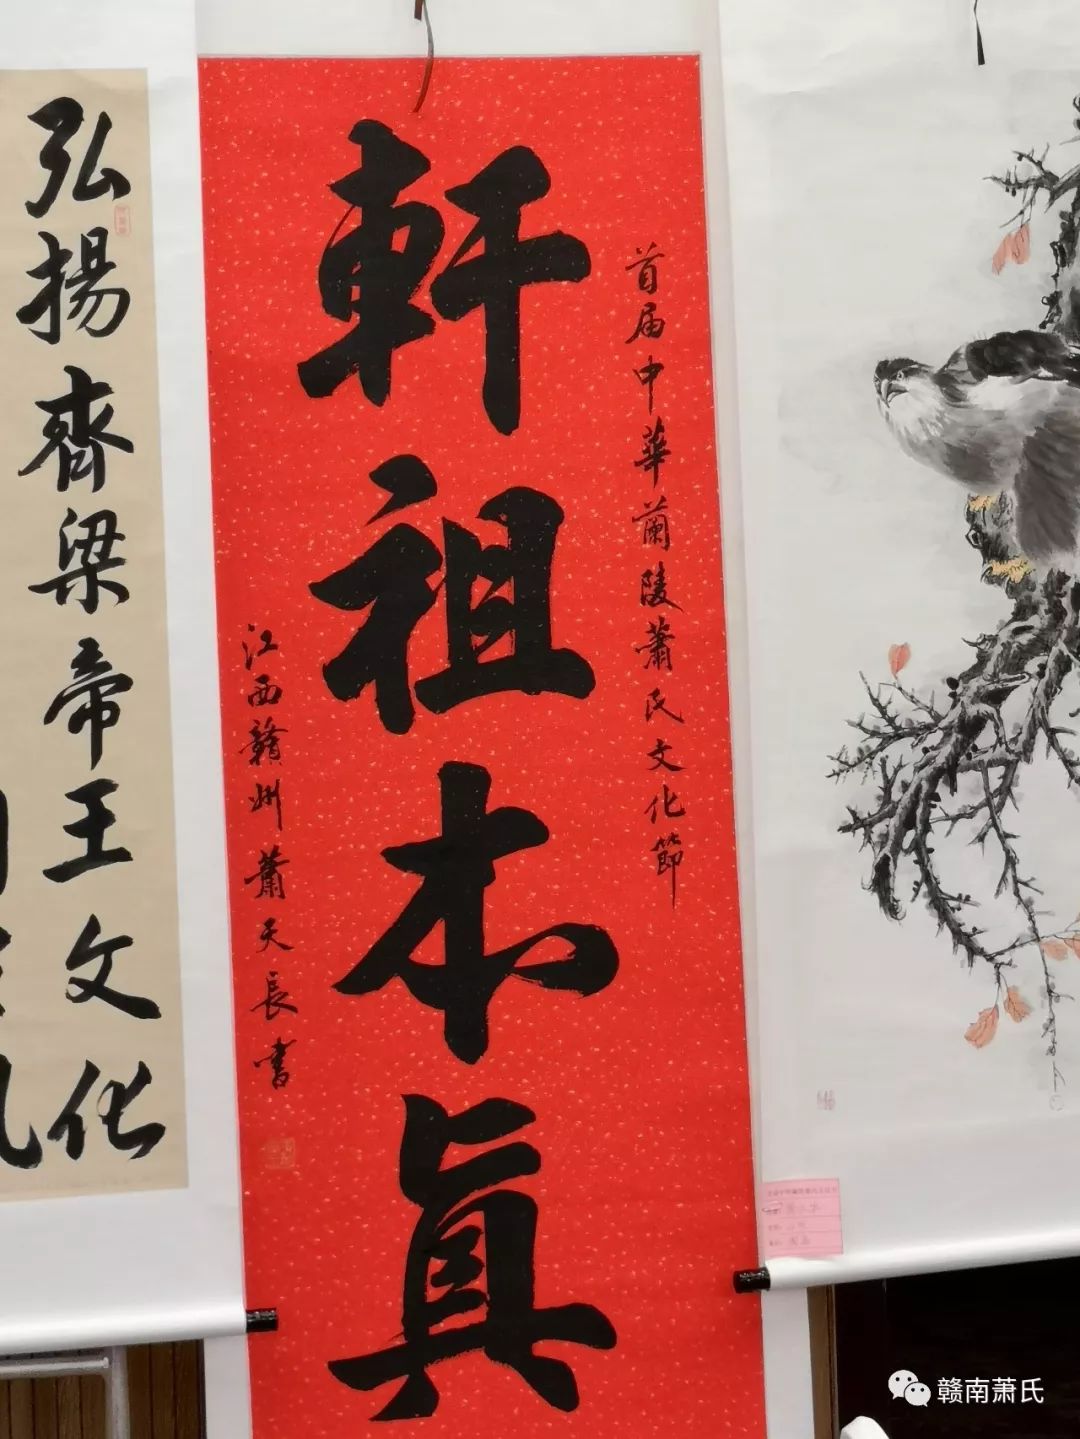 軒祖本真
首届中華蘭陵蕭氏文化節
江西赣州蕭天長書
弘揚齊梁帝王文化
赣南萧氏